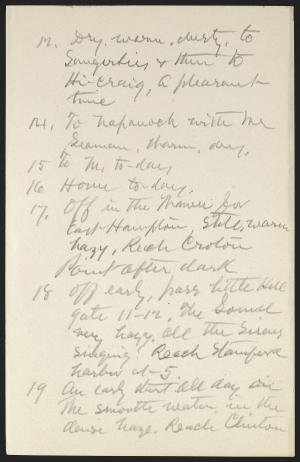 12. Dry, warm, dusty, to
Saugerties & then to
Hi-Craig, A pleasant
time
14. To Napanoch with Mr
Seaman, Warm, dry.
15 to N. to-day
16 Home to-day.
17. Off in the for
East Hampton, Still, warm
hazy, Reach Croton
Point after dark
18 Off early, pass Little Hell
gate 11-12, The Sound
very hazy, all the Sirens
singing. Reach Stamford
harbor at 5.
19 An early start all day on
the smooth water in the
dense haze. Reach Clinton